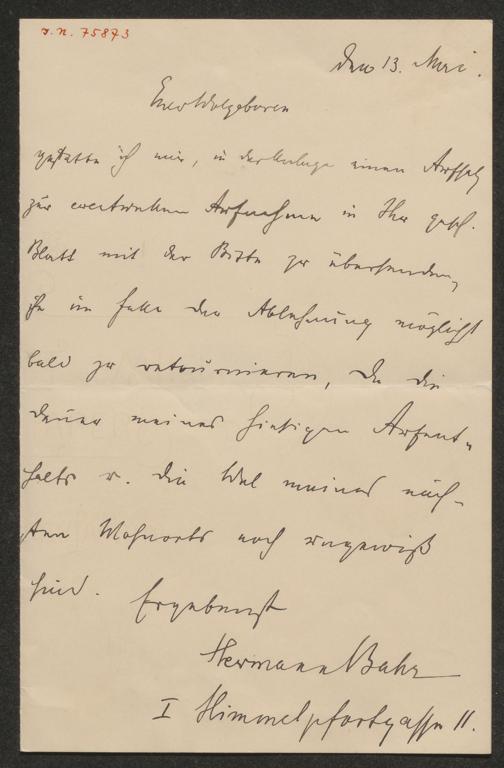 I.N. 75873
den 13. Mai.
Euer Wolgeboren
gestatte ich mir, in der Anlage einen Aufsatz
zur eventuellen Aufnahme in Ihr gesch.
Blatt mit der Bitte zu übersenden,
ihn im Falle der Ablehnung möglichst
bald zu retournieren, da die
Dauer meines hiesigen Aufent-
halts u. die Wal meines näch-
sten Wohnorts noch ungewiß
sind.
Ergebenst
Hermann Bahr
I Himmelpfortgasse 11.